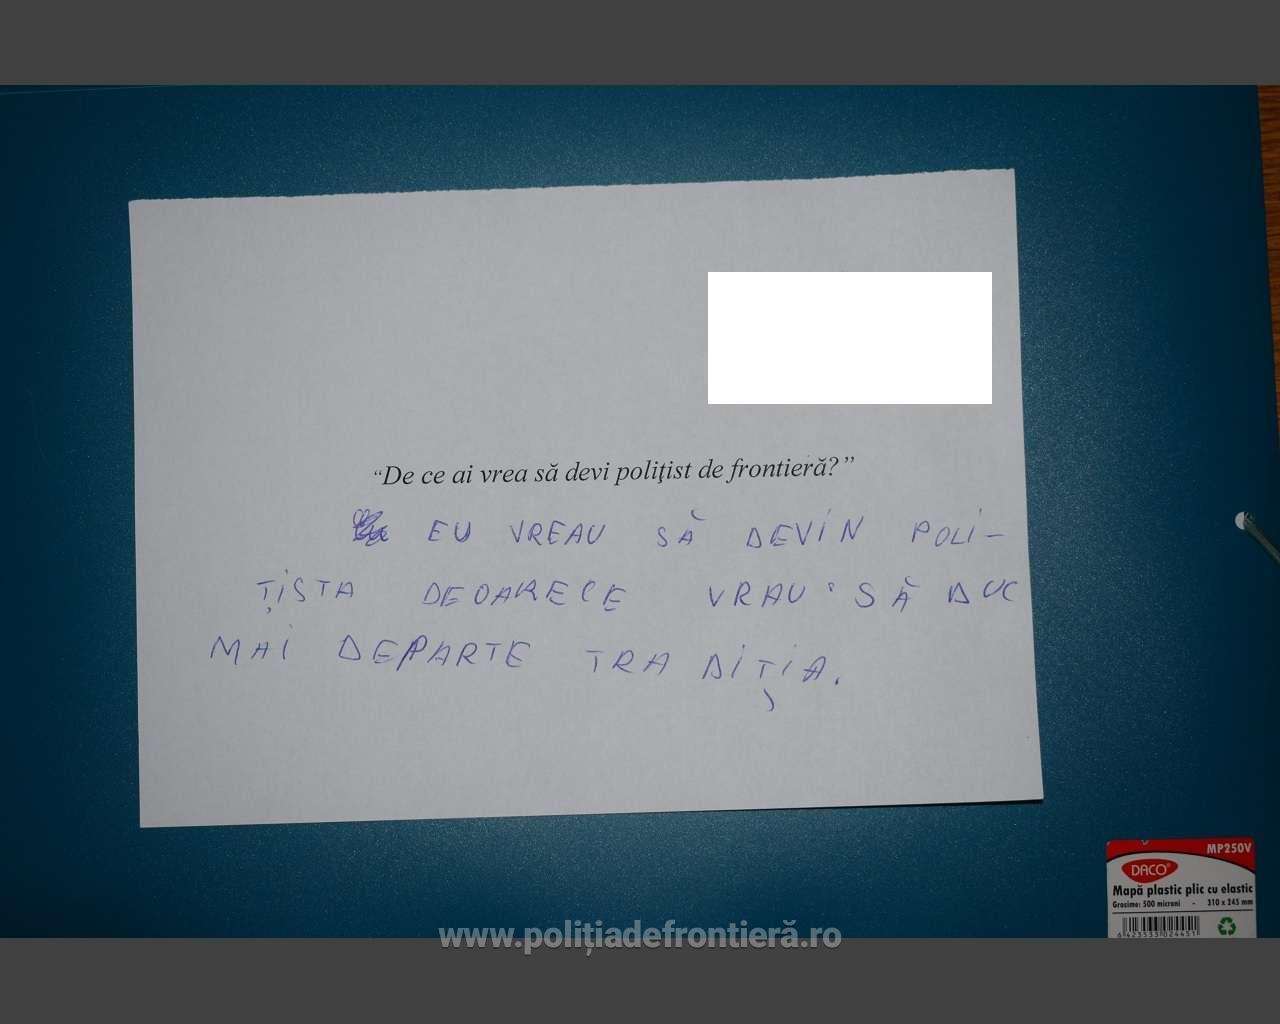 “De ce ai vrea să devi poliţist de frontieră?”
EU VREAU SĂ DEVIN POLI-
ȚISTA DEOARECE VRAU SĂ DUC
MAI DEPARTE TRADIȚIA.
MP250V
DACO
Mapă plastic plic cu elastic
Grosime: 500 microni - 310 x 245 mm
6423533024451
www.poliţiadefrontieră.ro